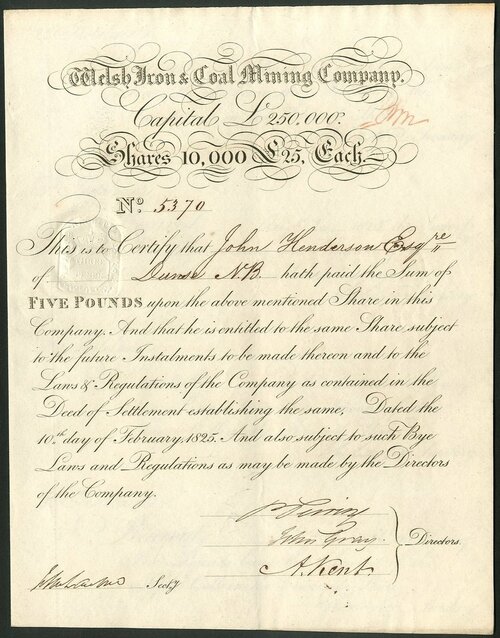 Welsh Iron & Coal Mining Company.
Capital £250,000.
Shares 10,000 £25, Each.
No. 5370
This is to Certify that John Henderson Esqre
of Dunse NB hath paid the Sum of
FIVE POUNDS upon the above mentioned Share in this
Company. And that he is entitled to the same Share, subject
to the future Instalments to be made thereon and to the
Laws & Regulations of the Company as contained in the
Deed of Settlement establishing the same, Dated the
10th day of February, 1825. And also subject to such Bye
Laws and Regulations as may be made by the Directors
of the Company.
John Gray.
Directors.
A. Kent.
Secty